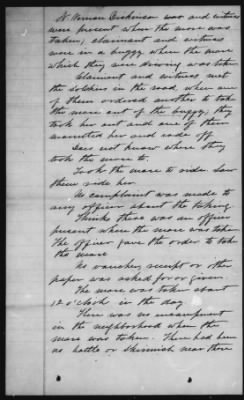 N Norman Dickinson was and witness
were present when the mare was
taken; claimant and witness
were in a buggy when the mare
which they were driving was taken
Claimant and witness met
the soldiers in the road, when one
of them ordered another to take
the mare out of the buggy; they
took her out and one of them
mounted her and rode off.
Does not know where they
took the mare to.
Took the mare to ride. Saw
them ride her.
No complaint was made to
any officer about the taking.
Thinks there was an officer
present when the mare was taken
The officer gave the order to take
the mare
No voucher, receipt or other
paper was asked for or given.
The mare was taken about
12 o'clock in the day
There was no encampment
in the neighborhood when the
mare was taken. There had been
no battle or skirmish near there